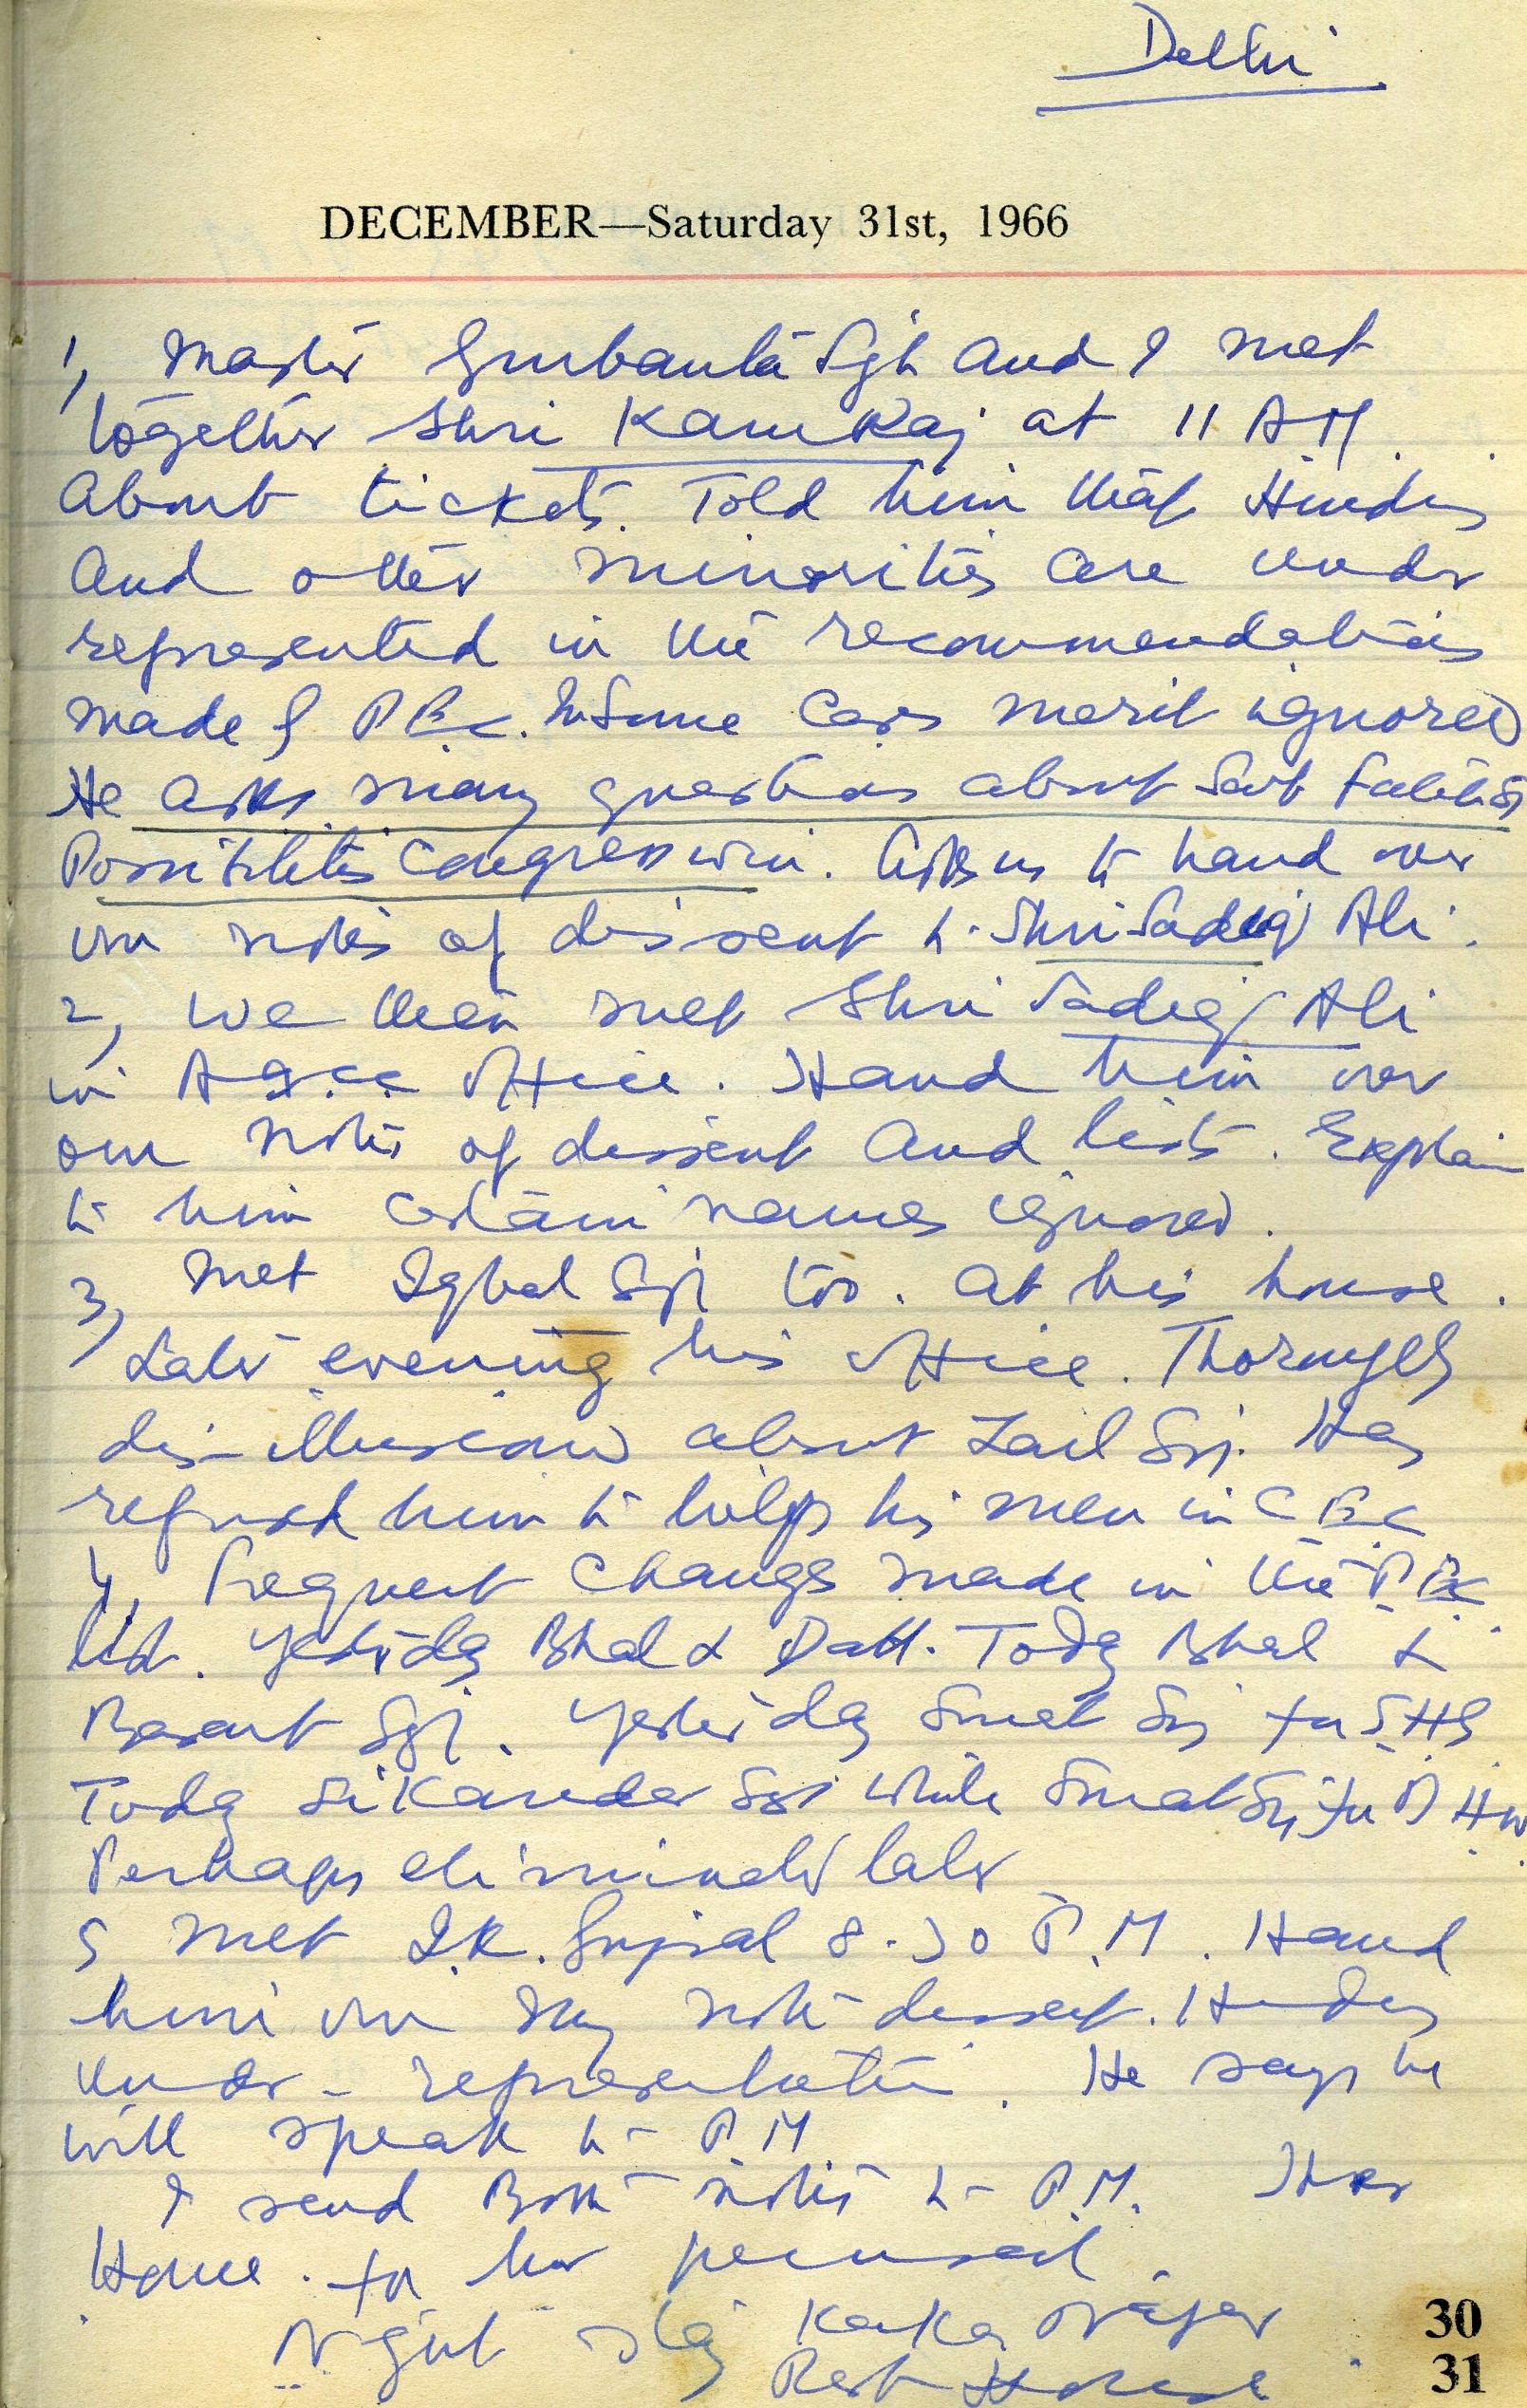 Delhi
DECEMBER—Saturday 31st, 1966
1, Master Gurbanta Sgh and I met
together Shri KamRaj at 11 AM.
About tickets. Told him that Hindus
and other minorities are under
represented in the recommendations
made by P.E.C. In some cases merit ignored
He asks many questions about Sant Fateh Sgh
Possibilities Congress win. Asks us to hand over
our notes of dissent to Shri Sadiq Ali.
2, We then met Shri Sadiq Ali
in A.I.C.C. Office. Hand him over
our notes of dissent and lists. Explain
to him certain names ignored.
3, Met Iqbal Sgh too. at his house.
Later evening his office. Thoroughly
dis-illusioned about Zail Sgh. Has
refused him to help his men in C.E.C
4, Frequent changes made in the P.E.C
list. Yesterday Bhal & Datt. Today Bhal &
Basant Sgh. Yesterday Sgh for
Today Sikander Sgh while Sgh for
Perhaps eliminated later
5 Met I.K. Gujral 8.30 P.M. Hand
him over my note dissent. Hindus
under-representation. He says he
will speak to P.M
I send Both notes to P.M. Her
House. for her perusal.
Night stay Kaka Nagar
Rest House
30
31